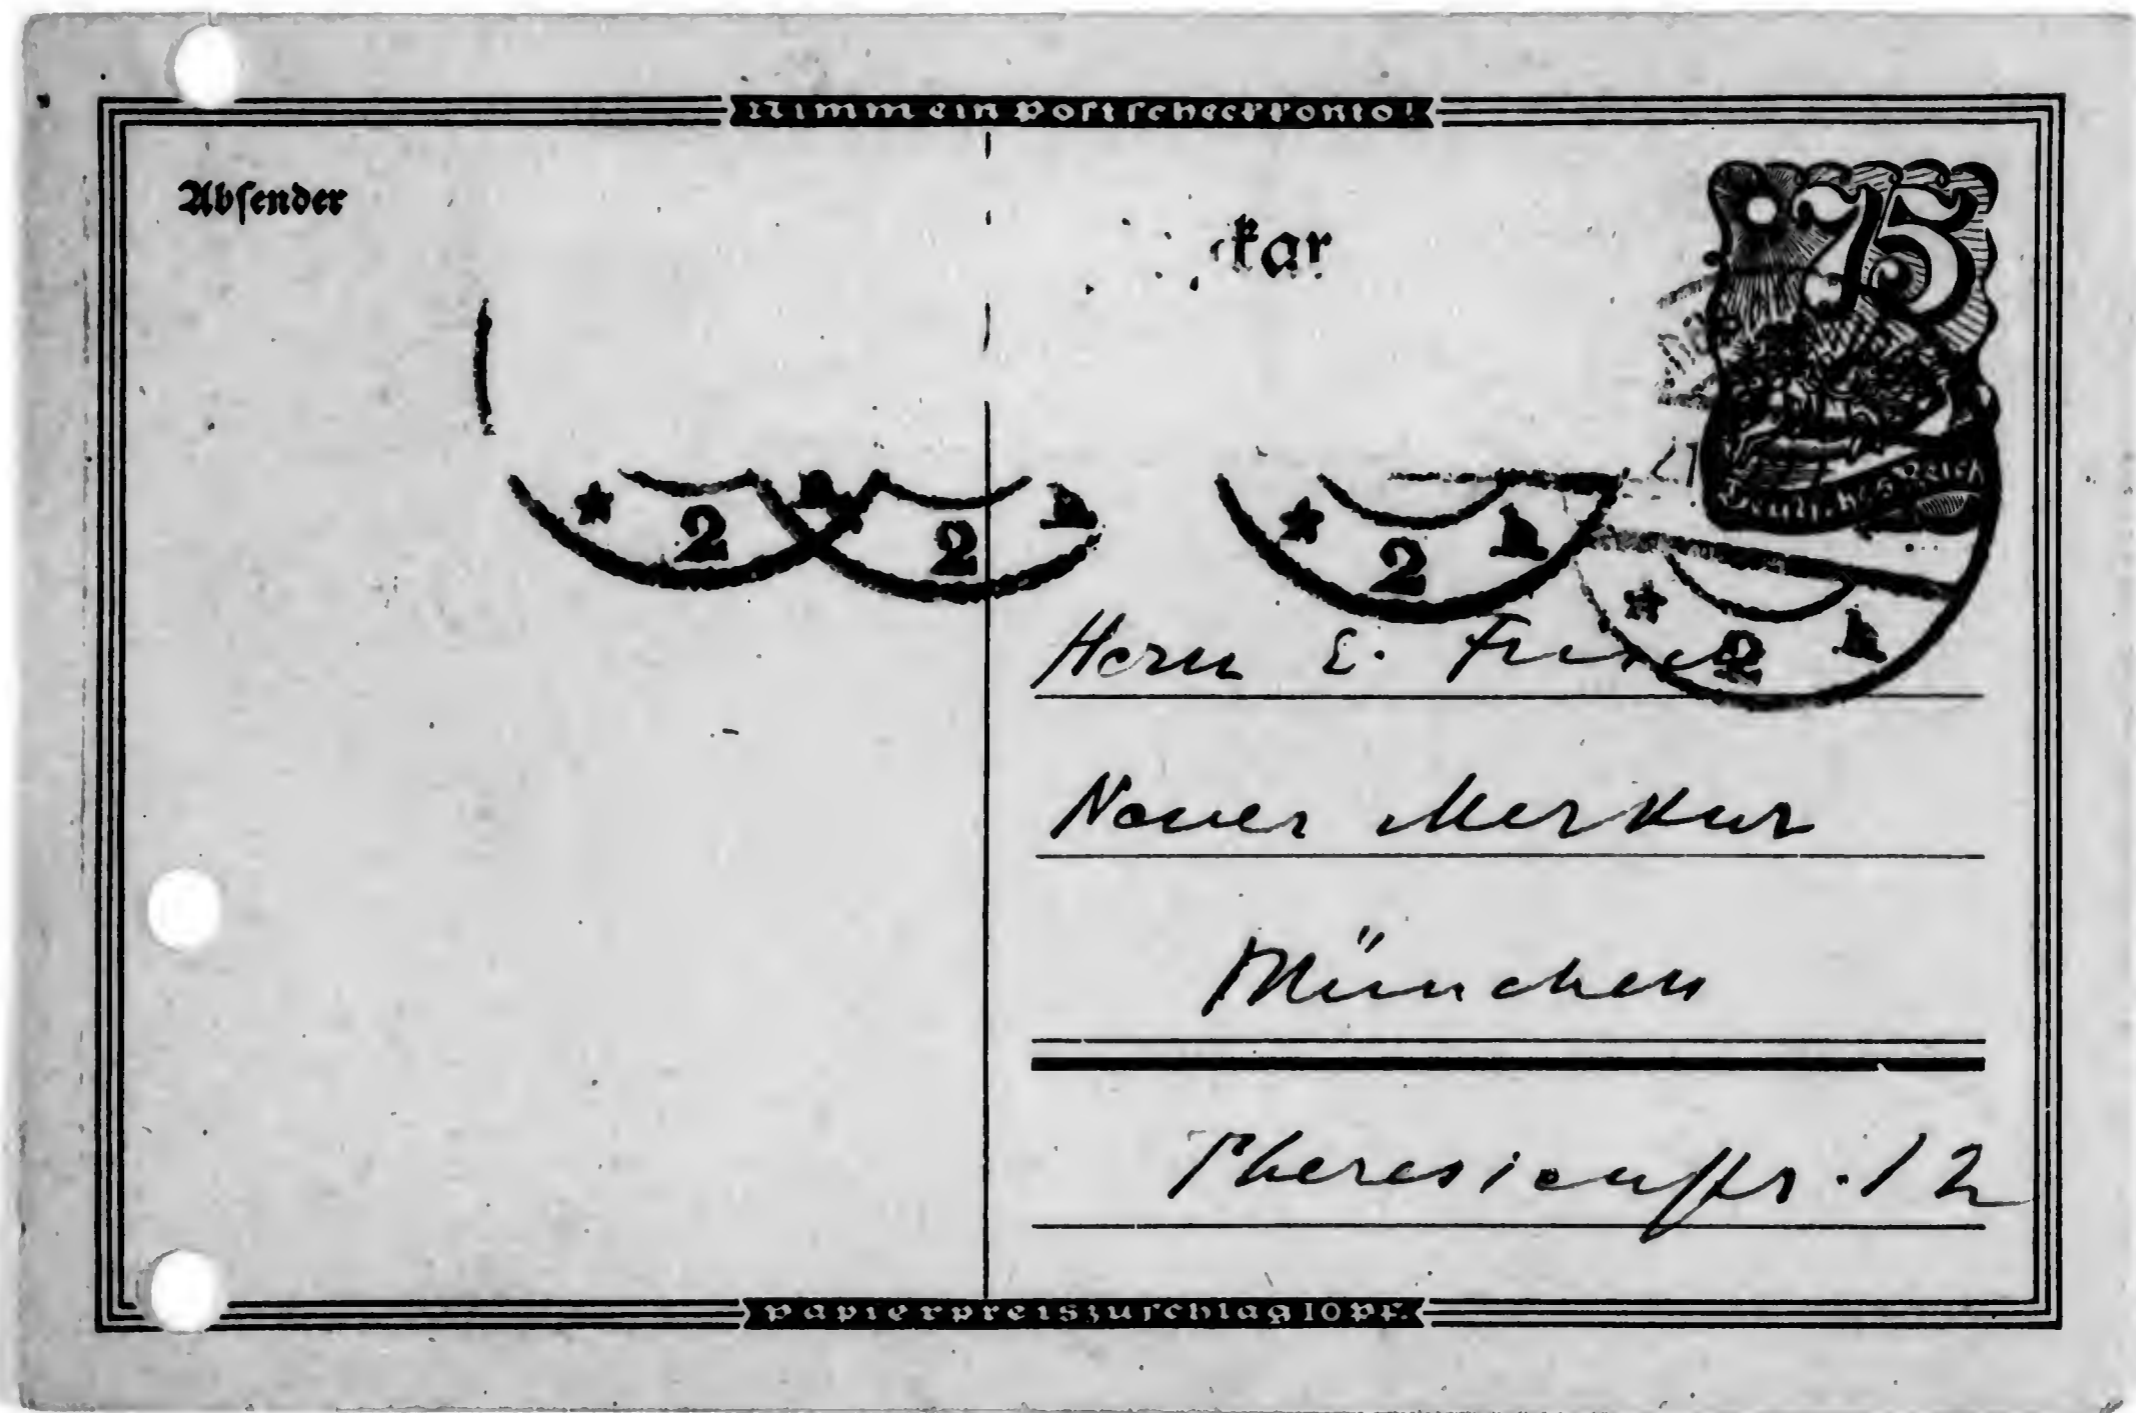 Nimm ein Postscheckkonto!
Absender
kar
75
Deutsches Reich
2 2 2 2
Herrn E. Frisch
Neuer Merkur
München
Theresienstr. 12
Papierpreiszuschlag 10 Pf.